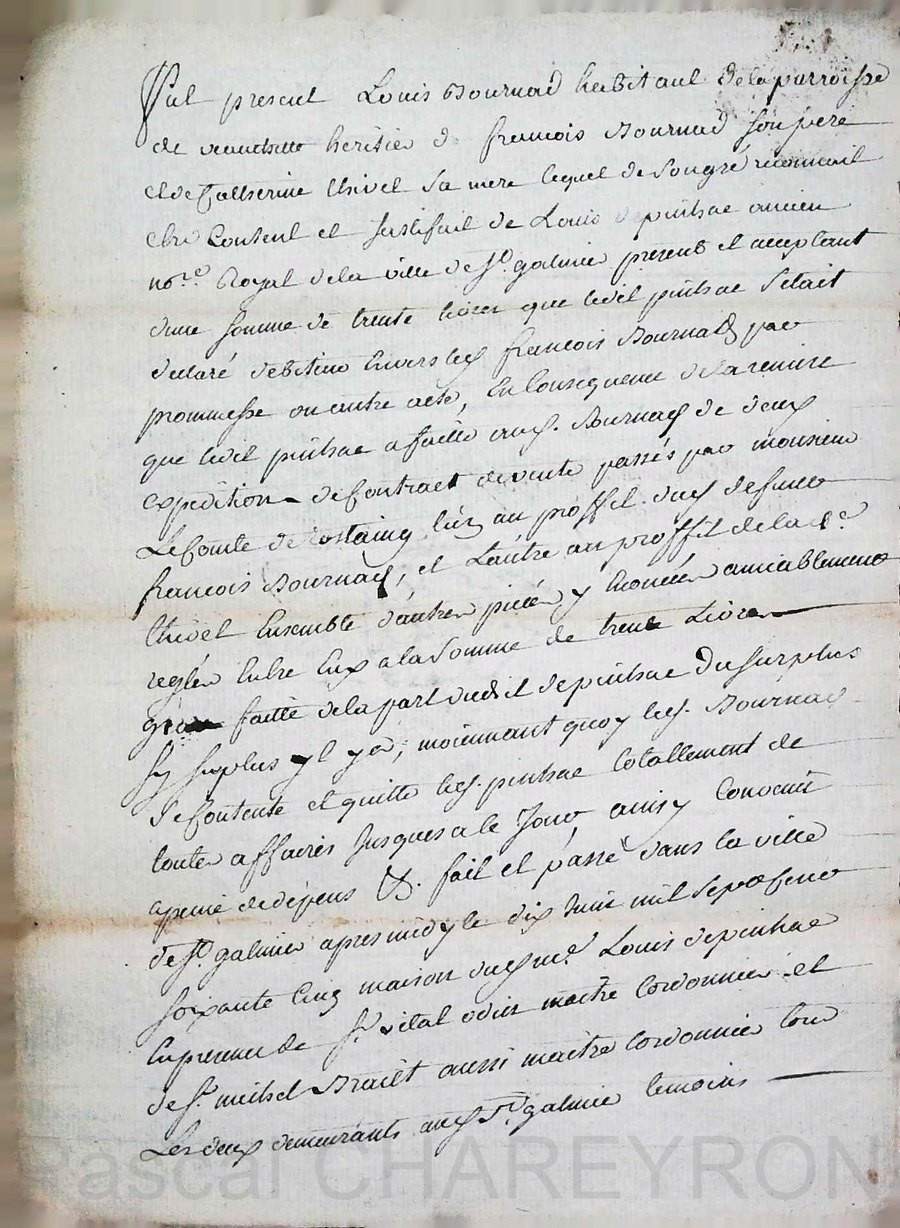 Fut present Louis Bournad habitant de la parroisse
de veauchette heritier de francois Bournad son pere
et de Catherine thivel sa mere lequel de son gré reconnait
etre Content et satisfait de Louis depinhac ancien
no.re Royal de la ville de St. galmier present et acceptant
dune somme de trente livres que ledit pinhac setait
declaré debiteur envers led francois Bournad par
prommesse ou autre acte, En Consequence de la remise
que ledit pinhac a faitte aud. Bournad de deux
expedition de Contract de vente passés par monsieur
Le Comte de Rostaing lun au proffit dud defunct
francois Bournad, et Lautre au proffit de la d.e
thivel Ensemble dautres pieces y Enoncées amiablement
reglés Entre Eux a la somme de trente Livres
grace faitte de la part dudit depinhac du surplus
sy surplus yl y a, moiennant quoy led. Bournad
se Contente et quitte led. pinhac totallement de
toutes affaires Jusques a ce Jour ainsy Convenu
a peine de dépens &. fait et passé dans la ville
de St. galmier apres midy le dix Juin mil sept cent
soixante Cinq maison dud me. Louis depinhac
En presence de Sr. vital odin maitre Cordonnier et
de Sr. michel Brailt aussi maitre Cordonnier tous
Les deux demeurants aud St. galmier temoins
Pascal CHAREYRON